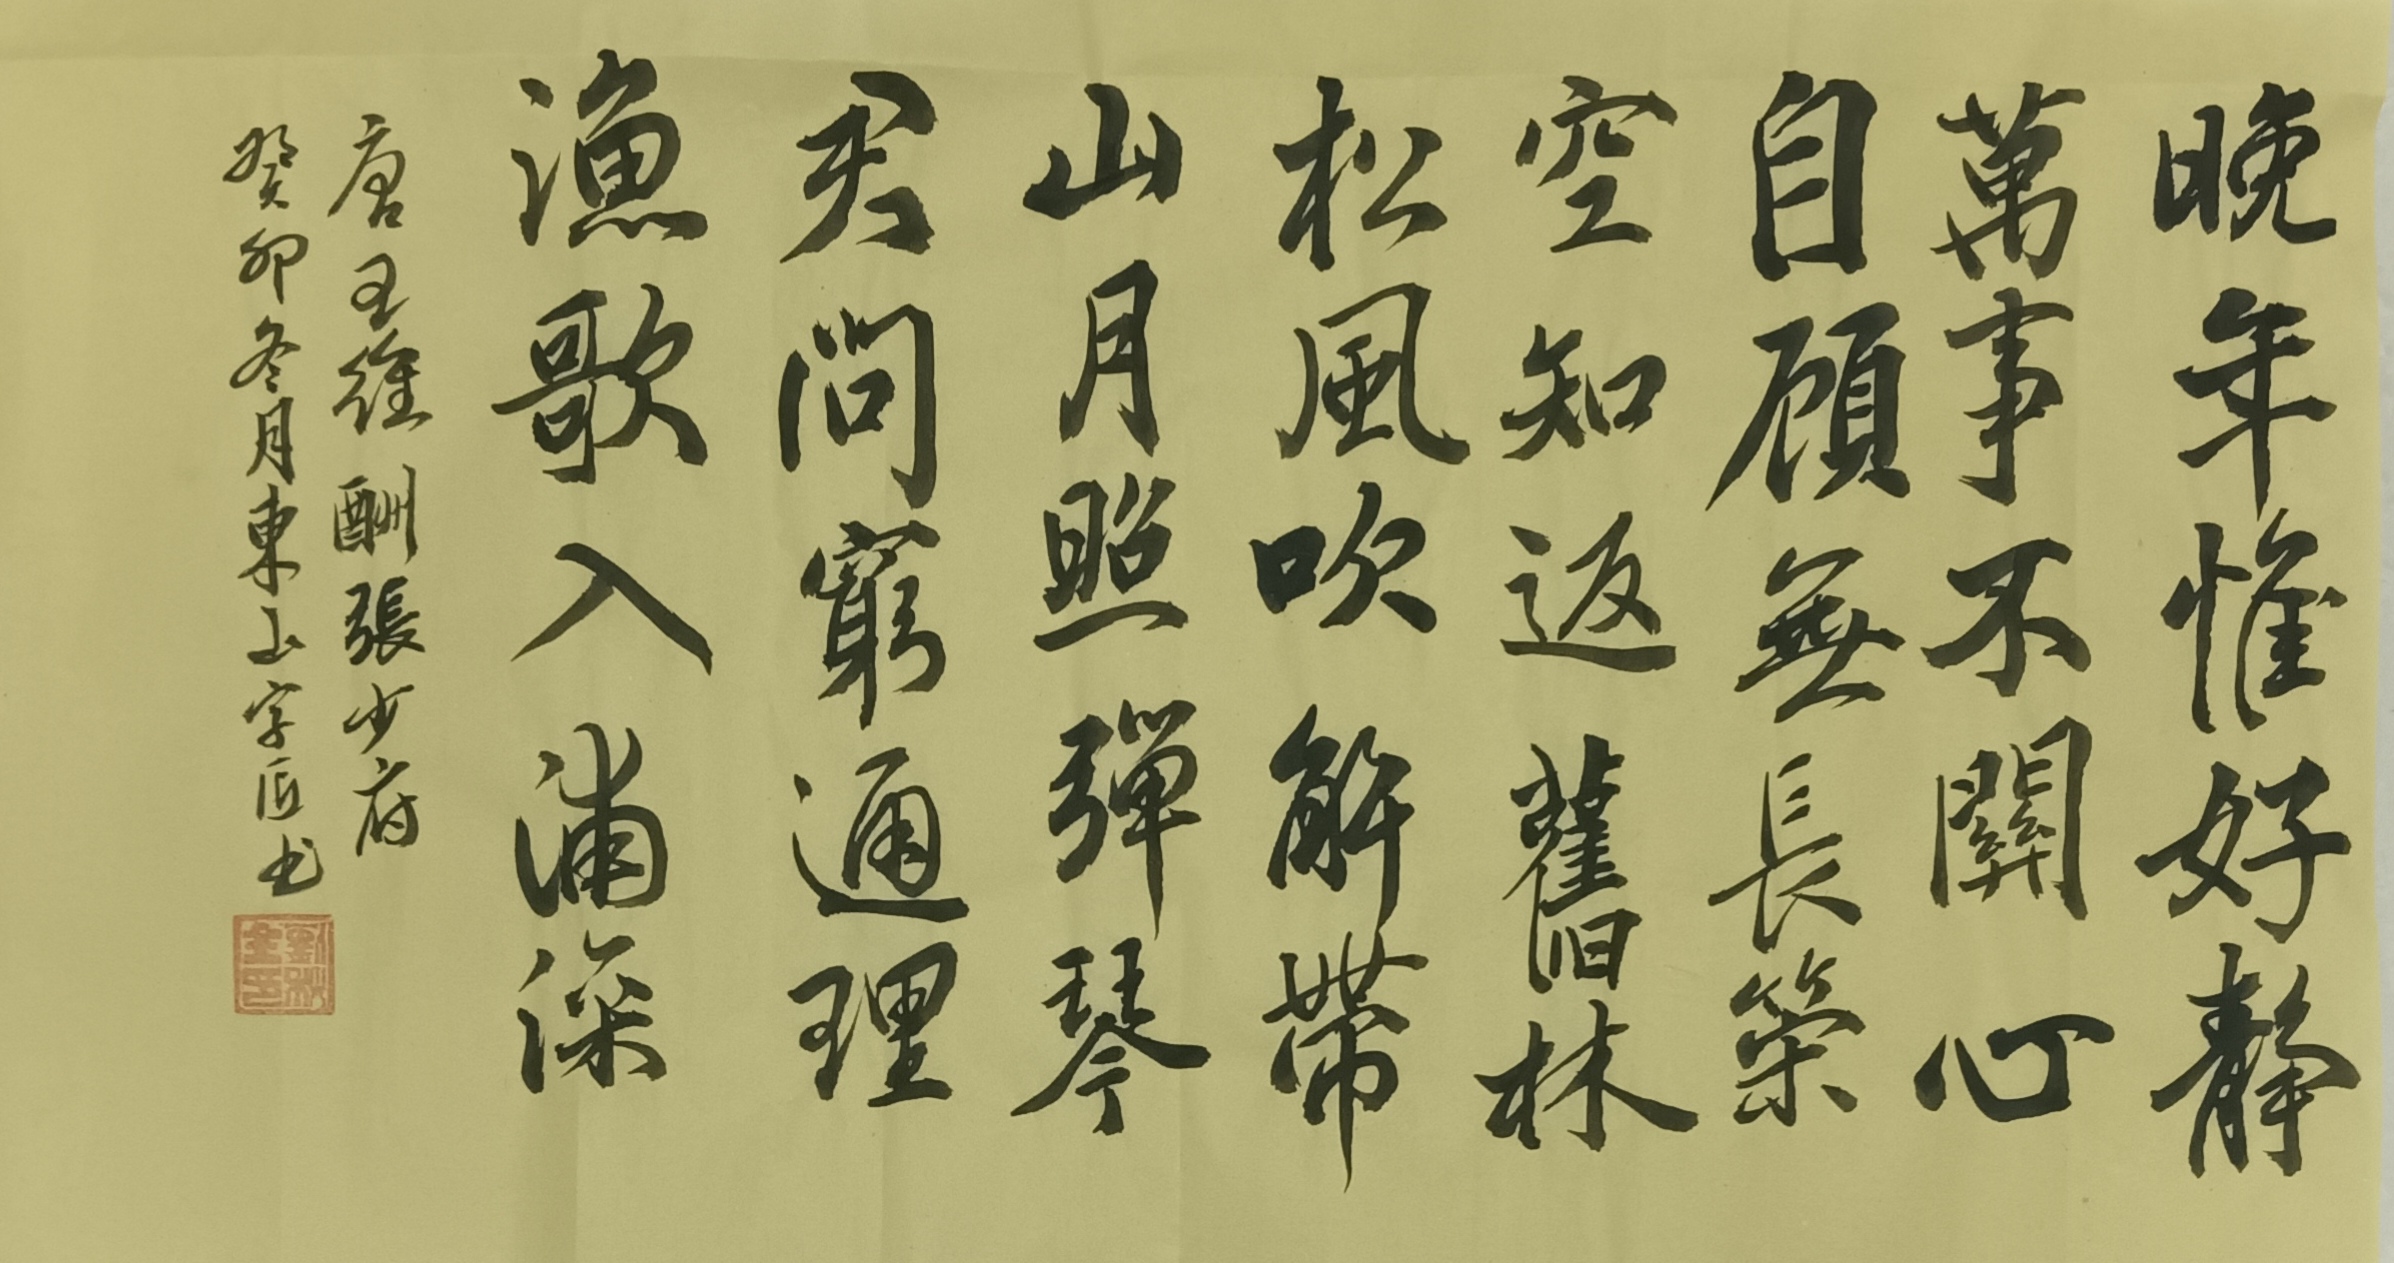 晚年惟好靜
萬事不關心
自顧無長策
空知返舊林
松風吹解帶
山月照彈琴
君問窮通理
漁歌入浦深
唐王維酬張少府
癸卯冬月東山字匠书